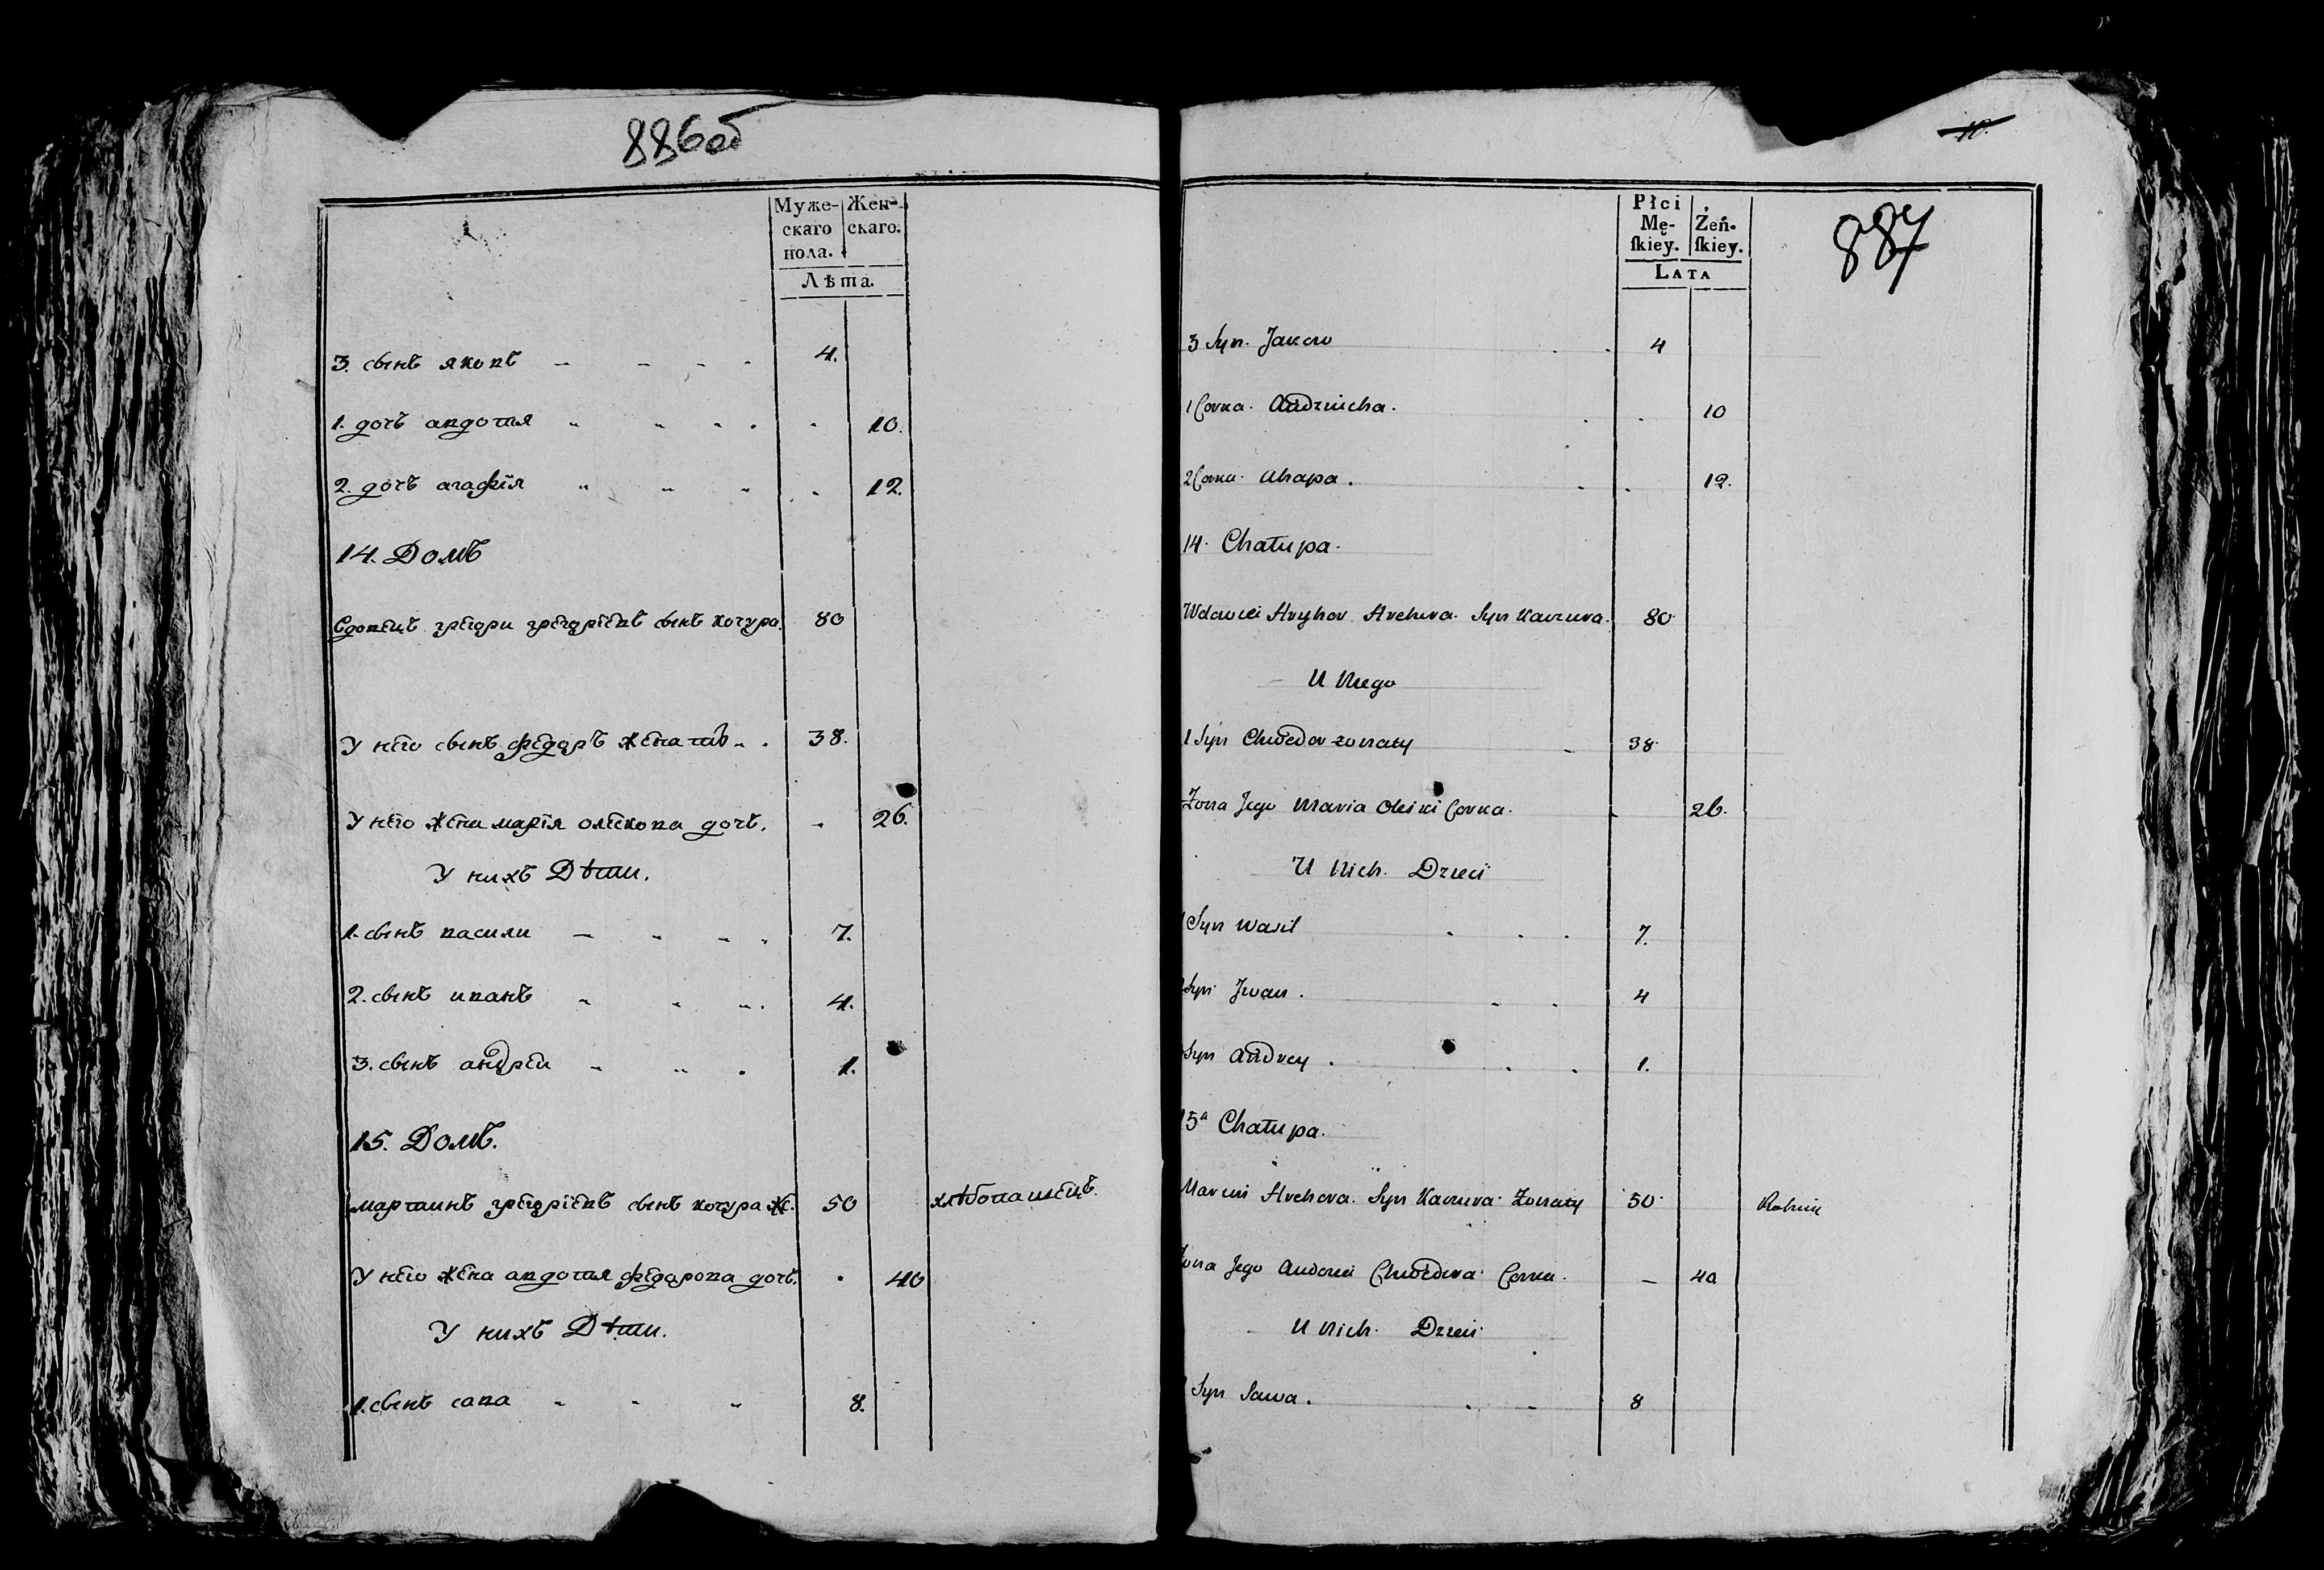 886об
Муже- Жен-
скаго скаго.
пола.
Лѣта.
3. сынъ яковъ 4.
1. дочъ авдотия 10.
2. дочъ агафия 12.
14. Домъ
вдовецъ григори григориевъ сынъ кочура 80
У него сынъ федаръ женатъ 38.
У него жена мария олекова дочъ. 26.
У нихъ Дѣти.
1. сынъ васили 7.
2. сынъ иванъ 4.
3. сынъ андреи 1.
15. Домъ.
мартинъ григориевъ сынъ кочура ж. 50 хлѣбопашецъ.
У него жена авдотия федарова дочъ. 40
У нихъ Дѣти.
1. сынъ сава 8.
10.
887
Płci
Mę- Żeń-
ſkiey. ſkiey.
LATA
3 Syn Jakow 4
1 Corka 10
2 Corka Ahapa. 12.
14. Chałupa.
Wdowiec Hryhor Syn 80
U Niego
1 Syn Chwedor żonaty 38
Żona Jego Maria Corka. 26.
U Nich Dzieci
1 Syn Wasil 7.
Syn Jwan. 4
Syn Andrey. 1.
15a Chałupa.
Marcin Syn Żonaty 50 Rolnik
Żona Jego Corka. 40
U Nich Dzieci
1 Syn Sawa. 8